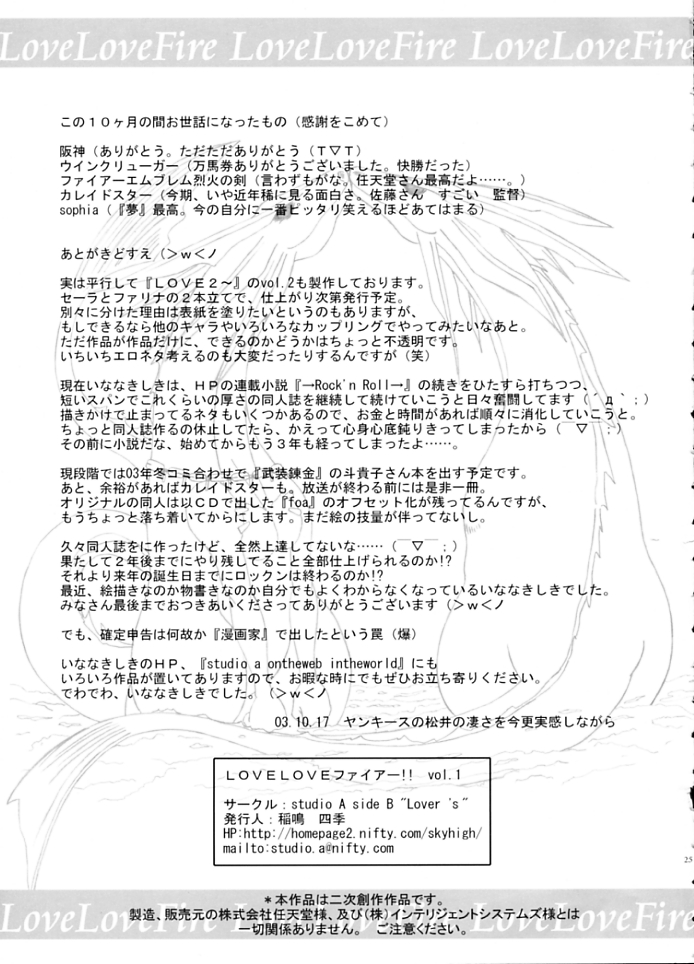 LoveLoveFire LoveLoveFire LoveLoveFire
この１０ヶ月の間お世話になったもの（感謝をこめて）
阪神（ありがとう。ただただありがとう（Ｔ▽Ｔ）
ウインクリューガー（万馬券ありがとうございました。快勝だった）
ファイアーエムブレム烈火の剣（言わずもがな。任天堂さん最高だよ……。）
カレイドスター（今期、いや近年稀に見る面白さ。佐藤さん　すごい　監督）
sophia（『夢』最高。今の自分に一番ピッタリ笑えるほどあてはまる）
あとがきどすえ（＞ｗ＜ノ
実は平行して『ＬＯＶＥ２～』のvol.2も製作しております。
セーラとファリナの２本立てで、仕上がり次第発行予定。
別々に分けた理由は表紙を塗りたいというのもありますが、
もしできるなら他のキャラやいろいろなカップリングでやってみたいなあと。
ただ作品が作品だけに、できるのかどうかはちょっと不透明です。
いちいちエロネタ考えるのも大変だったりするんですが（笑）
現在いななきしきは、ＨＰの連載小説『→Rock'n Roll→』の続きをひたすら打ちつつ、
短いスパンでこれくらいの厚さの同人誌を継続して続けていこうと日々奮闘してます（´д｀；）
描きかけで止まってるネタもいくつかあるので、お金と時間があれば順々に消化していこうと。
ちょっと同人誌作るの休止してたら、かえって心身心底鈍りきってしまったから（￣▽￣；）
その前に小説だな、始めてからもう３年も経ってしまったよ……。
現段階では03年冬コミ合わせで『武装錬金』の斗貴子さん本を出す予定です。
あと、余裕があればカレイドスターも。放送が終わる前には是非一冊。
オリジナルの同人は以ＣＤで出した『foa』のオフセット化が残ってるんですが、
もうちょっと落ち着いてからにします。まだ絵の技量が伴ってないし。
久々同人誌をに作ったけど、全然上達してないな……（￣▽￣；）
果たして２年後までにやり残してること全部仕上げられるのか!?
それより来年の誕生日までにロックンは終わるのか!?
最近、絵描きなのか物書きなのか自分でもよくわからなくなっているいななきしきでした。
みなさん最後までおつきあいくださってありがとうございます（＞ｗ＜ノ
でも、確定申告は何故か『漫画家』で出したという罠（爆）
いななきしきのＨＰ、『studio a ontheweb intheworld』にも
いろいろ作品が置いてありますので、お暇な時にでもぜひお立ち寄りください。
でわでわ、いななきしきでした。（＞ｗ＜ノ
03.10.17　ヤンキースの松井の凄さを今更実感しながら
ＬＯＶＥＬＯＶＥファイアー!!　vol.1
サークル：studio A side B "Lover 's"
発行人：稲鳴　四季
HP:http://homepage2.nifty.com/skyhigh/
mailto:studio.a@nifty.com
25
＊本作品は二次創作作品です。
製造、販売元の株式会社任天堂様、及び(株)インテリジェントシステムズ様とは
一切関係ありません。　ご注意ください。
LoveLoveFire LoveLoveFire LoveLoveFire